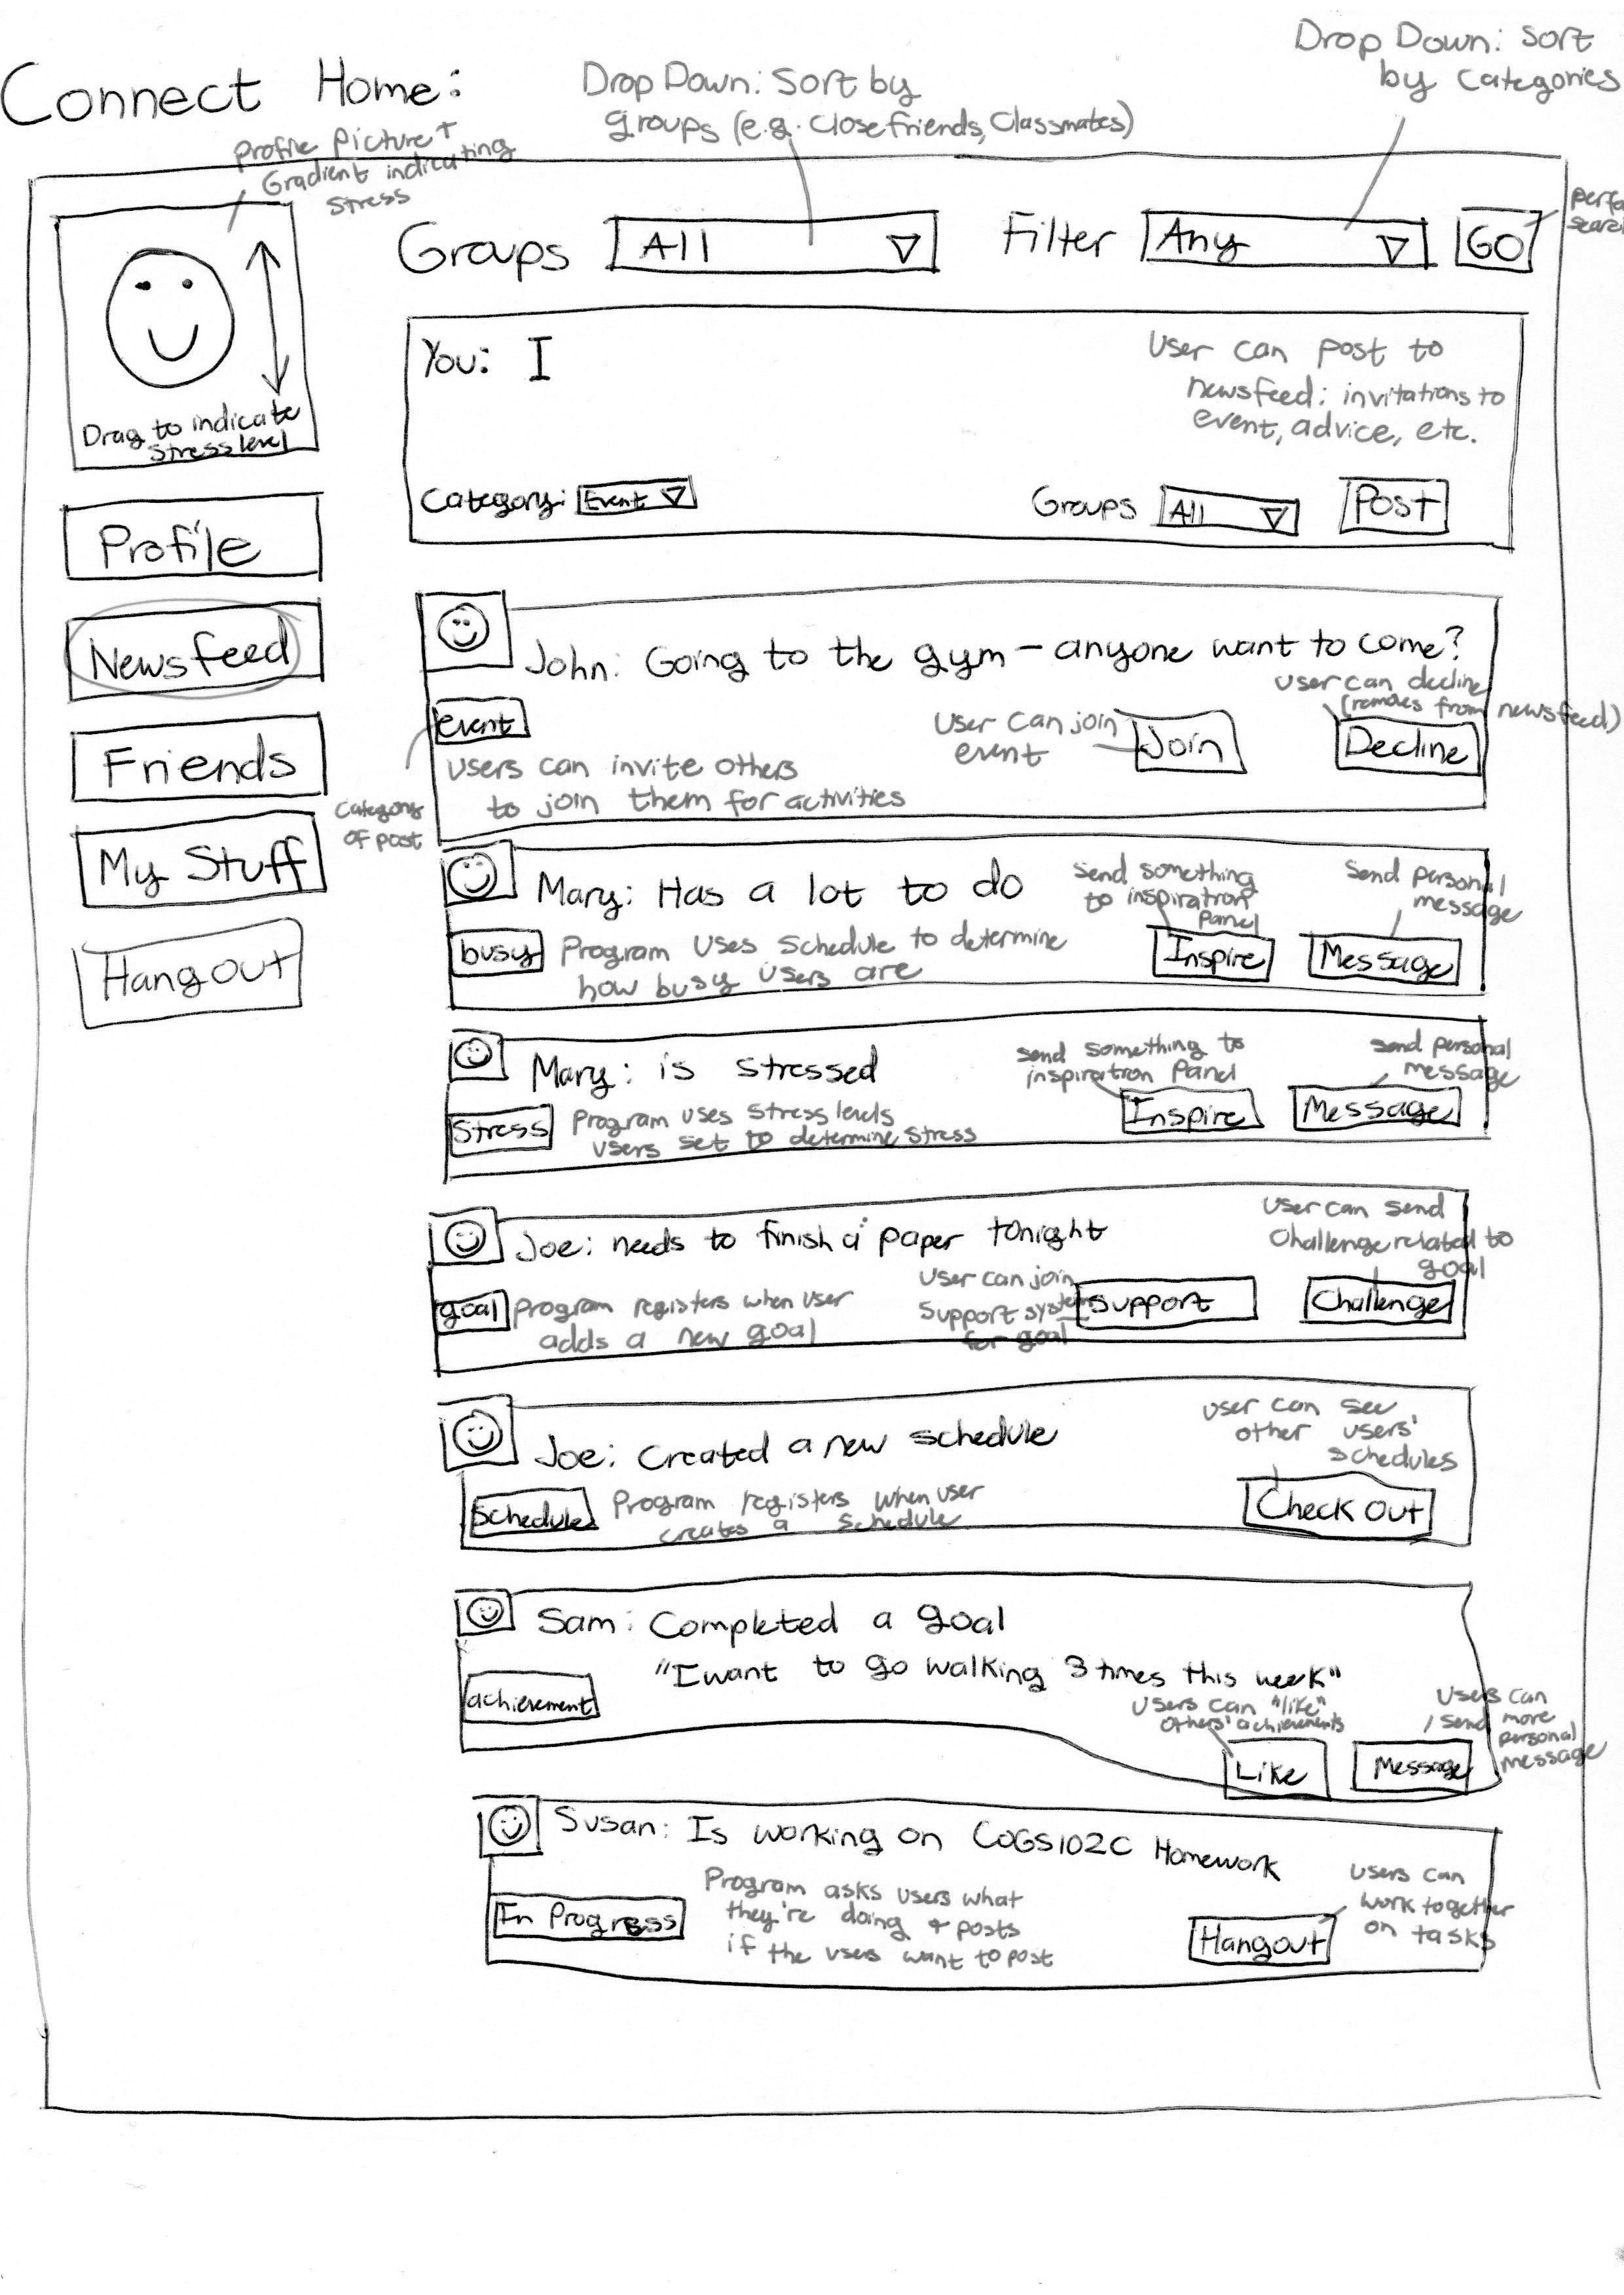 Connect Home:
Drop Down: Sort by
groups (e.g. Close friends, Classmates)
Drop Down: Sort
by Categories
Profile picture +
Gradient indicating
Stress
Groups All Filter Any GO
Drag to indicate
stress level
You: I
User can post to
newsfeed: invitations to
event, advice, etc.
Category: Event Groups All Post
Profile
Newsfeed
Friends
My Stuff
Hangout
John: Going to the gym - anyone want to come?
event
Category
of post
Users can invite others
to join them for activities
User can join
event
Join
User can decline
(removes from newsfeed)
Decline
Mary: Has a lot to do
busy
Program uses schedule to determine
how busy users are
Send something
to inspiration
Panel
Inspire
Send personal
message
Message
Mary: is stressed
Stress
Program uses stress levels
users set to determine stress
Send something to
inspiration Panel
Inspire
Send personal
message
Message
Joe: needs to finish a paper tonight
goal
Program registers when user
adds a new goal
User can join
Support system
for goal
Support
User can send
Challenge related to
goal
Challenge
Joe: Created a new schedule
Schedule
Program registers when user
creates a schedule
User can see
other users'
schedules
Check Out
Sam: Completed a goal
"I want to go walking 3 times this week"
achievement
Users can "like"
others' achievements
Like
Users can
send more
personal
message
Message
Susan: Is working on COGS102C Homework
In Progress
Program asks users what
they're doing + posts
if the users want to post
Users can
work together
on tasks
Hangout